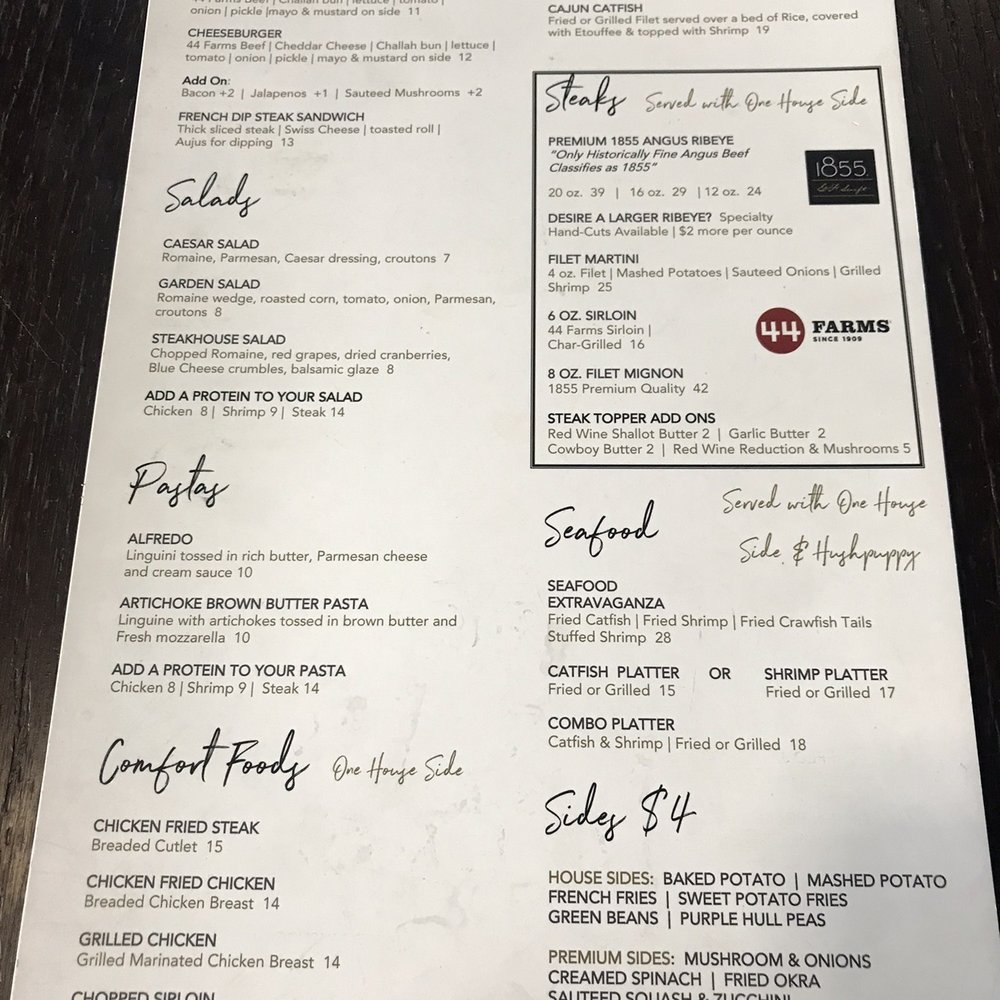 44 Farms Beef | Challah bun | lettuce | tomato |
onion | pickle |mayo & mustard on side 11
CHEESEBURGER
44 Farms Beef | Cheddar Cheese | Challah bun | lettuce |
tomato | onion | pickle | mayo & mustard on side 12
Add On:
Bacon +2 | Jalapenos +1 | Sauteed Mushrooms +2
FRENCH DIP STEAK SANDWICH
Thick sliced steak | Swiss Cheese | toasted roll |
Aujus for dipping 13
Salads
CAESAR SALAD
Romaine, Parmesan, Caesar dressing, croutons 7
GARDEN SALAD
Romaine wedge, roasted corn, tomato, onion, Parmesan,
croutons 8
STEAKHOUSE SALAD
Chopped Romaine, red grapes, dried cranberries,
Blue Cheese crumbles, balsamic glaze 8
ADD A PROTEIN TO YOUR SALAD
Chicken 8 | Shrimp 9 | Steak 14
Pastas
ALFREDO
Linguini tossed in rich butter, Parmesan cheese
and cream sauce 10
ARTICHOKE BROWN BUTTER PASTA
Linguine with artichokes tossed in brown butter and
Fresh mozzarella 10
ADD A PROTEIN TO YOUR PASTA
Chicken 8 | Shrimp 9 | Steak 14
Comfort Foods One House Side
CHICKEN FRIED STEAK
Breaded Cutlet 15
CHICKEN FRIED CHICKEN
Breaded Chicken Breast 14
GRILLED CHICKEN
Grilled Marinated Chicken Breast 14
CHOPPED SIRLOIN
CAJUN CATFISH
Fried or Grilled Filet served over a bed of Rice, covered
with Etouffee & topped with Shrimp 19
Steaks Served with One House Side
PREMIUM 1855 ANGUS RIBEYE
"Only Historically Fine Angus Beef
Classifies as 1855"
1855
20 oz. 39 | 16 oz. 29 | 12 oz. 24
DESIRE A LARGER RIBEYE? Specialty
Hand-Cuts Available | $2 more per ounce
FILET MARTINI
4 oz. Filet | Mashed Potatoes | Sauteed Onions | Grilled
Shrimp 25
6 OZ. SIRLOIN
44 Farms Sirloin |
Char-Grilled 16
44 FARMS
SINCE 1909
8 OZ. FILET MIGNON
1855 Premium Quality 42
STEAK TOPPER ADD ONS
Red Wine Shallot Butter 2 | Garlic Butter 2
Cowboy Butter 2 | Red Wine Reduction & Mushrooms 5
Seafood Served with One House
Side & Hushpuppy
SEAFOOD
EXTRAVAGANZA
Fried Catfish | Fried Shrimp | Fried Crawfish Tails
Stuffed Shrimp 28
CATFISH PLATTER OR SHRIMP PLATTER
Fried or Grilled 15 Fried or Grilled 17
COMBO PLATTER
Catfish & Shrimp | Fried or Grilled 18
Sides $4
HOUSE SIDES: BAKED POTATO | MASHED POTATO
FRENCH FRIES | SWEET POTATO FRIES
GREEN BEANS | PURPLE HULL PEAS
PREMIUM SIDES: MUSHROOM & ONIONS
CREAMED SPINACH | FRIED OKRA
SAUTEED SQUASH & ZUCCHINI